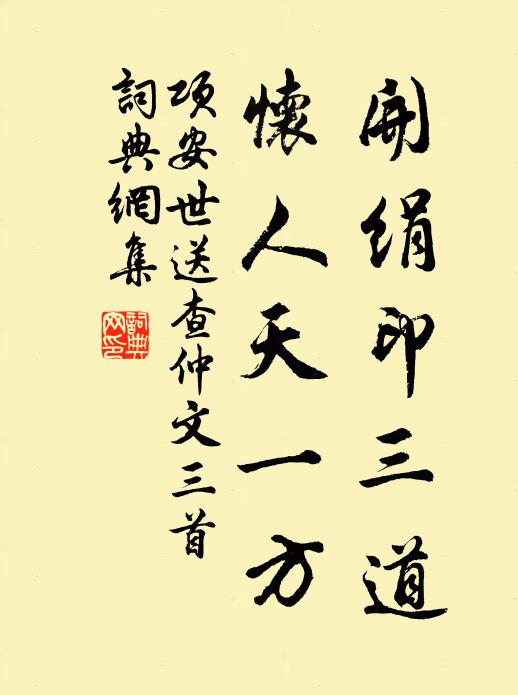 開絹印三道
懷人天一方
項安世送查仲文三首
詞典網集
詞典網印